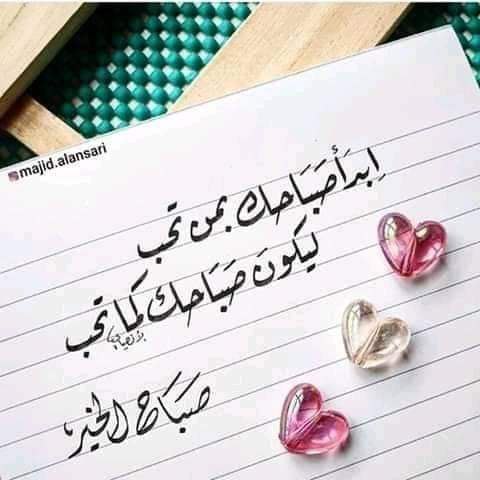 majid.alansari
اِبدَأ صَبَاحك بمن تحب
ليكونَ صَبَاحك كما تحب
صَبَاح الخير